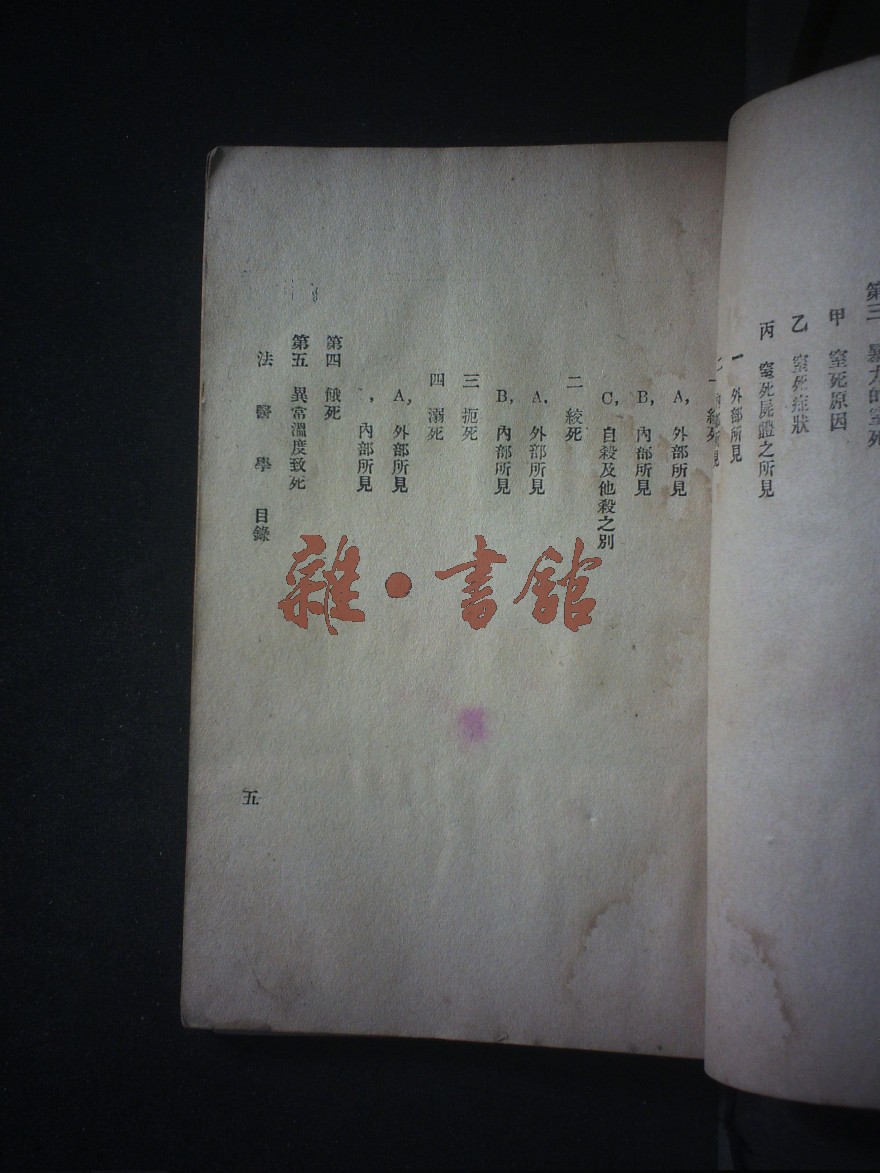 第三 暴力的窒死
甲 窒死原因
乙 窒死症狀
丙 窒死屍體之所見
一 外部所見
一 縊死
A, 外部所見
B, 內部所見
C, 自殺及他殺之別
二 絞死
A, 外部所見
B, 內部所見
三 扼死
四 溺死
A, 外部所見
, 內部所見
第四 餓死
第五 異常溫度致死
法醫學 目錄
五
雜·書館